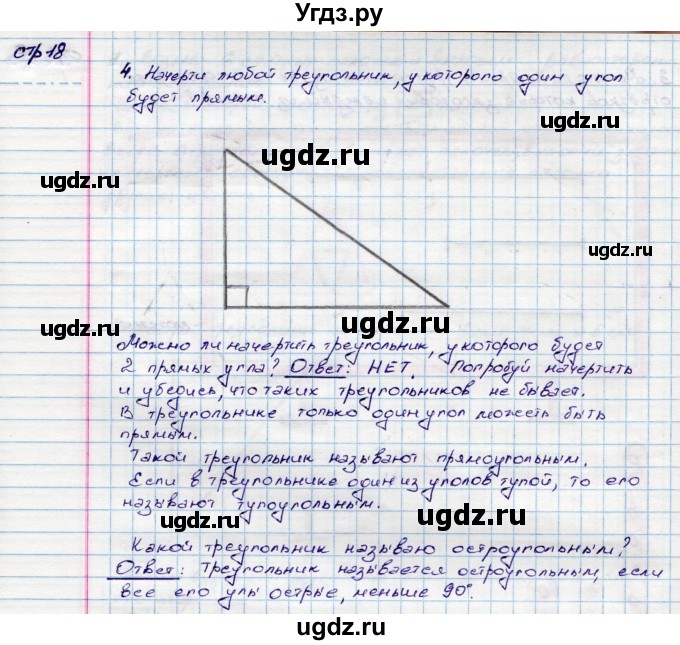 Угдз.ру
стр 18
4. Начерти любой треугольник, у которого один угол
будет прямым.
ugdz.ru
ugdz.ru
ugdz.ru
ugdz.ru
ugdz.ru
Можно ли начертить треугольник, у которого будет
2 прямых угла? Ответ: НЕТ. Попробуй начертить
и убедись, что таких треугольников не бывает.
ugdz.ru
ugdz.ru
В треугольнике только один угол может быть
прямым.
Такой треугольник называют прямоугольным.
Если в треугольнике один из углов тупой, то его
называют тупоугольным.
ugdz.ru
ugdz.ru
Какой треугольник называю остроугольным?
Ответ: Треугольник называется остроугольным, если
все его улы острые, меньше 90°.
ugdz.ru
ugdz.ru